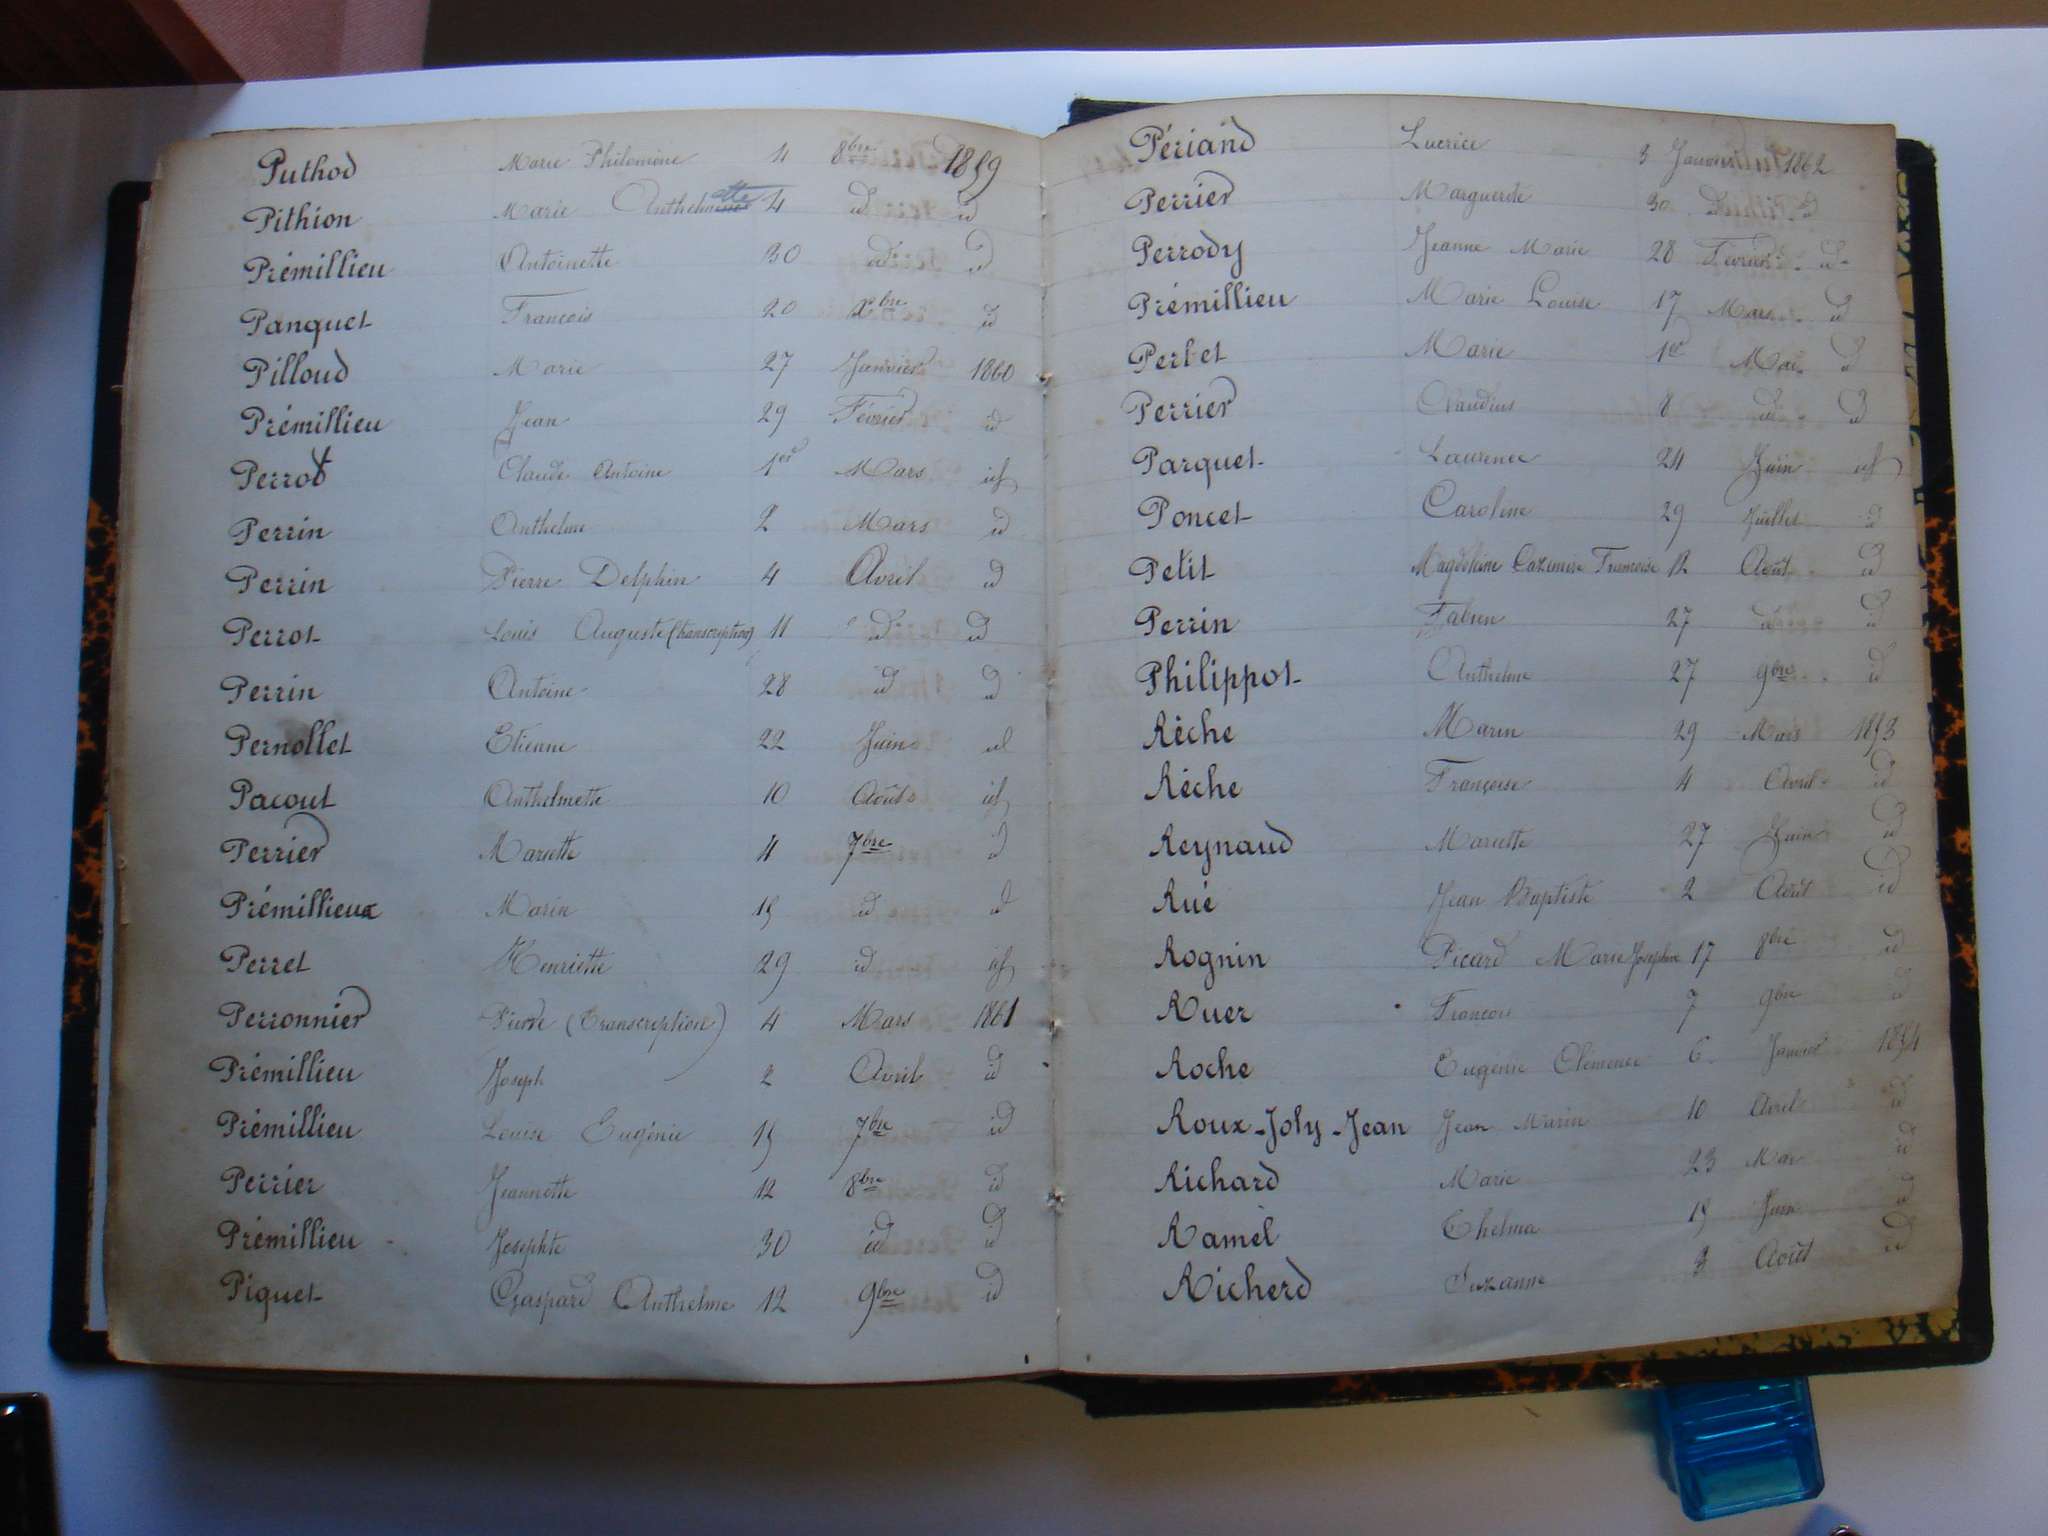 Puthod Marie Philomène 4 8bre 1859
Pithion Marie Anthelmette 4 id id
Prémillieu Antoinette 30 id id
Panquet François 20 Xbre id
Pilloud Marie 27 Janvier 1860
Prémillieu Jean 29 Février id
Perrot Claude Antoine 1er Mars id
Perrin Anthelme 2 Mars id
Perrin Pierre Delphin 4 Avril id
Perrot Louis Auguste (transcription) 11 id id
Perrin Antoine 28 id id
Pernollet Etienne 22 Juin id
Pacout Anthelmette 10 Août id
Perrier Mariette 11 7bre id
Prémillieux Marin 15 id id
Perret Henriette 29 id id
Perronnier Pierre (Transcription) 4 Mars 1861
Prémillieu Joseph 2 Avril id
Prémillieu Louise Eugénie 15 7bre id
Perrier Jeannette 12 8bre id
Prémillieu Josephte 30 id id
Piquet Gaspard Anthelme 12 9bre id
Périand Lucrèce 3 Janvier 1862
Perrier Marguerite 30 id id
Perrody Jeanne Marie 28 Février id
Prémillieu Marie Louise 17 Mars id
Perbet Marie 1er Mai id
Perrier Claudius 8 id id
Parquet Laurence 24 Juin id
Poncet Caroline 29 Juillet id
Petit Magdeleine Françoise 12 Août id
Perrin Fabien 27 id id
Philippot Anthelme 27 9bre id
Rêche Marin 29 Mars 1853
Rêche Françoise 4 Avril id
Reynaud Mariette 27 Juin id
Rué Jean Baptiste 2 Août id
Rognin Picard Marie Josephine 17 8bre id
Ruer François 7 9bre id
Roche Eugénie Clémence 6 Janvier 1854
Roux-Joly-Jean Jean Marin 10 Avril id
Richard Marie 23 Mai id
Ramel Thelma 15 Juin id
Richerd Suzanne Août id